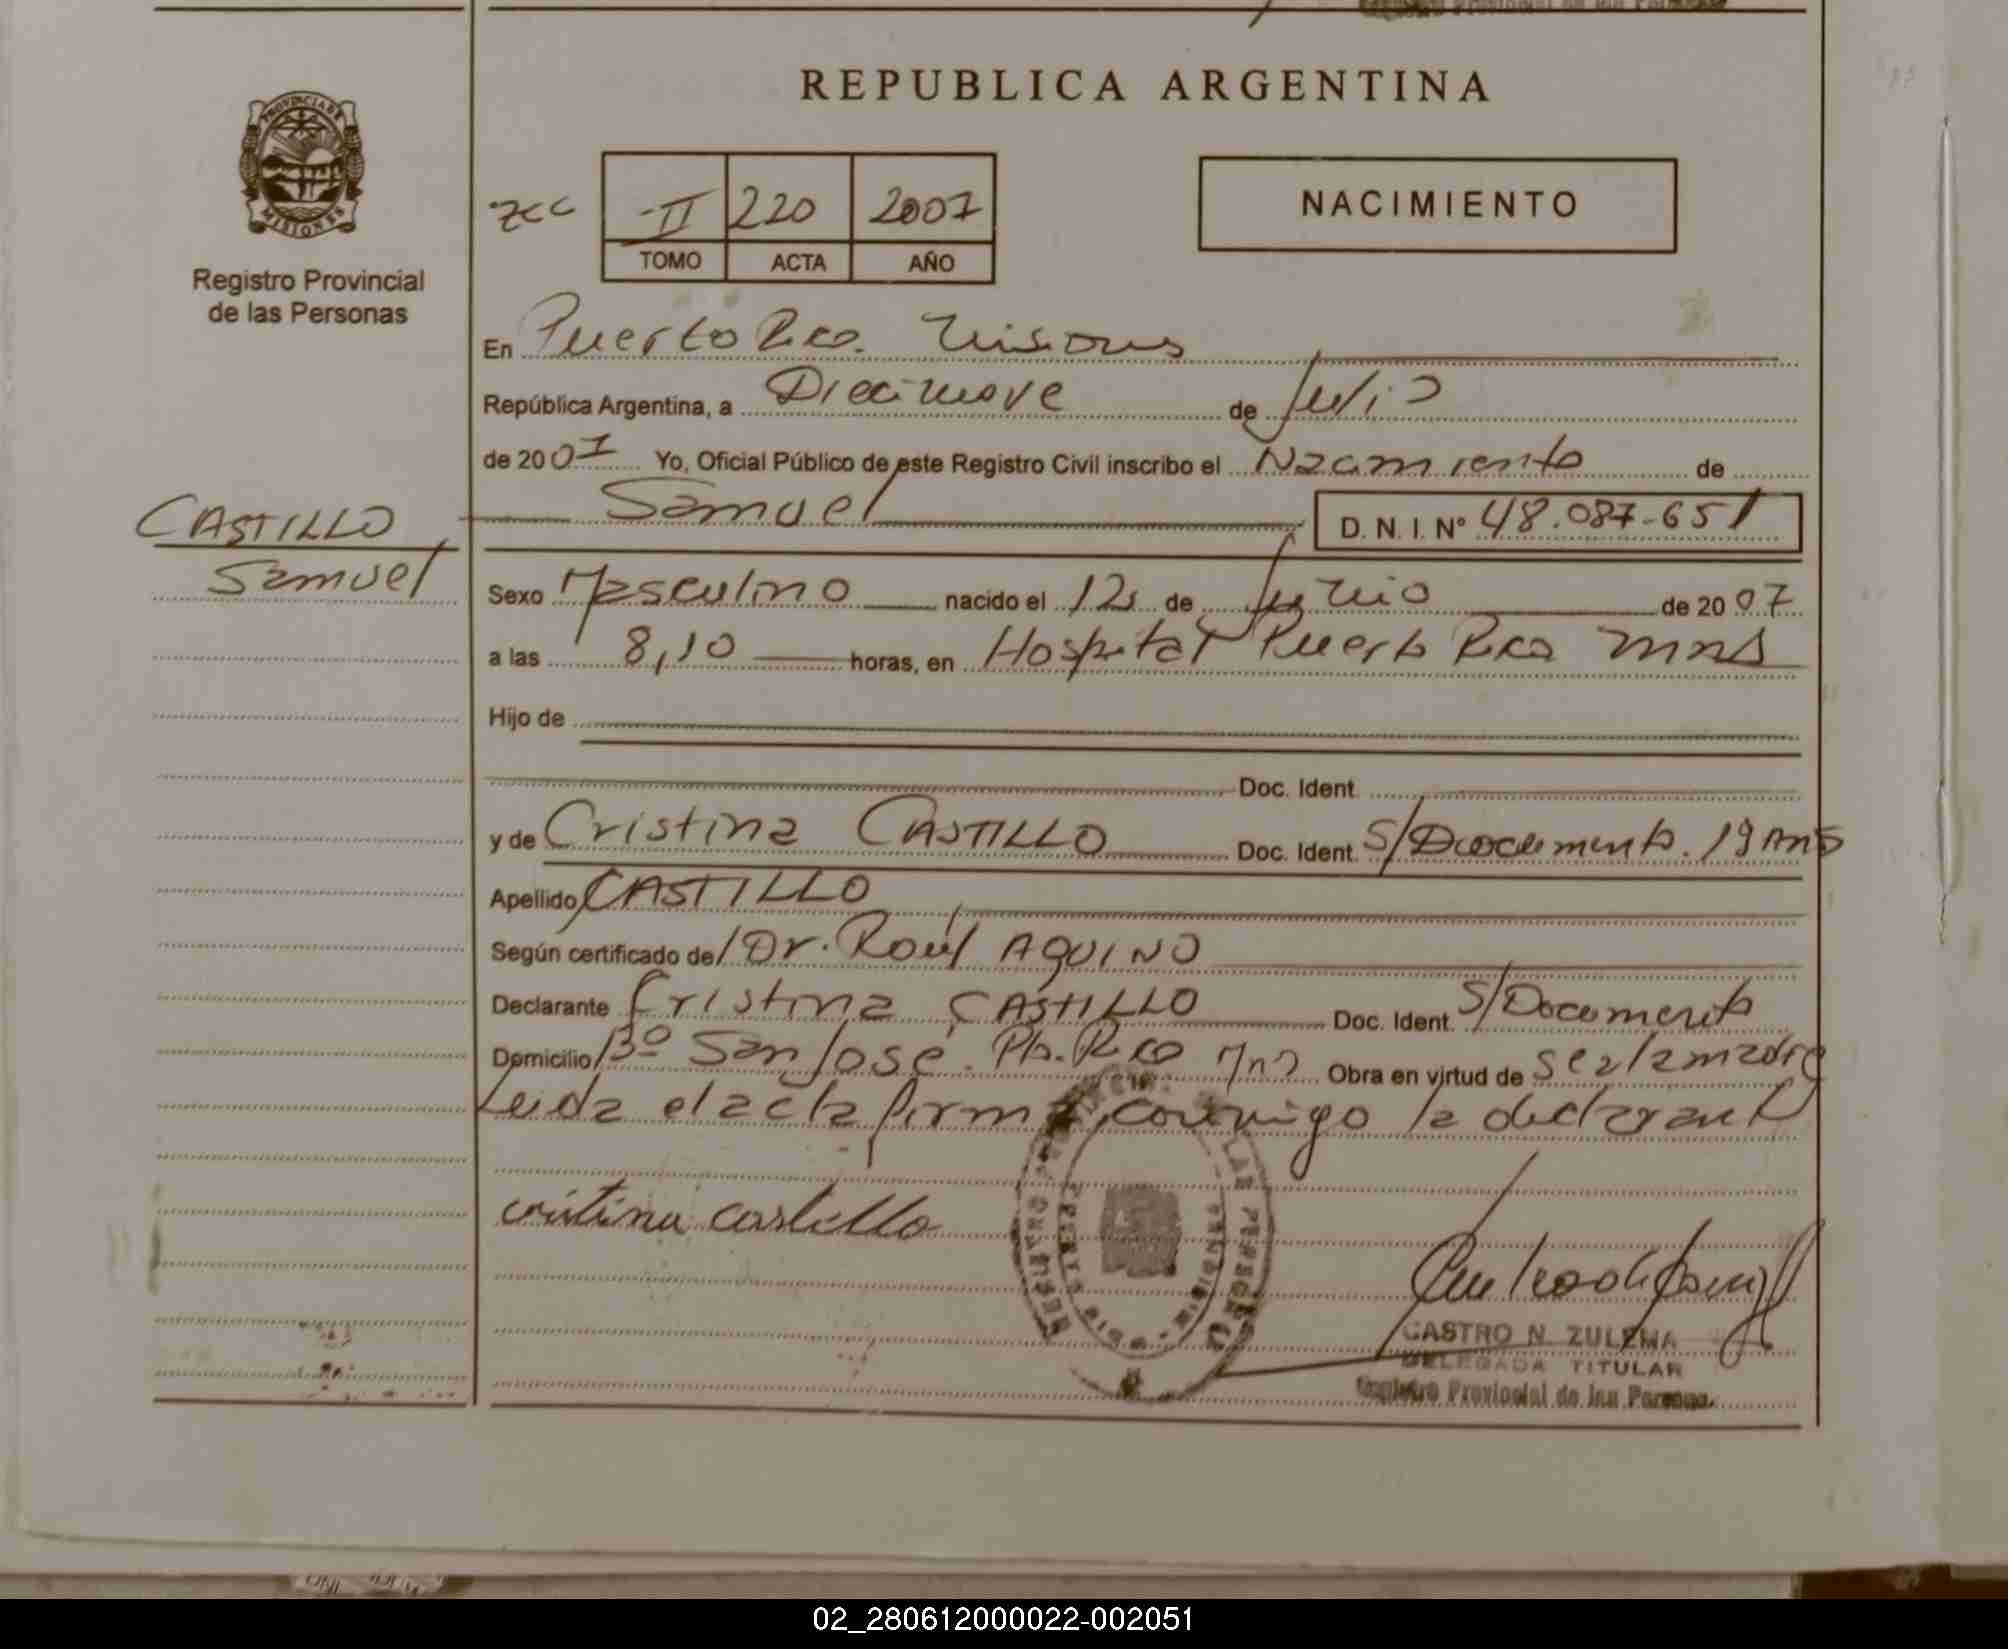 REPUBLICA ARGENTINA
PROVINCIA DE
MISIONES
Registro Provincial
de las Personas
II 220 2007
TOMO ACTA AÑO
NACIMIENTO
En Puerto Rico. Misiones
República Argentina, a Diecinueve de Julio
de 2007 Yo, Oficial Público de este Registro Civil inscribo el Nacimiento de
CASTILLO
Samuel
Samuel D. N. I. Nº 48.087-651
Sexo Masculino nacido el 12 de Junio de 2007
a las 8,10 horas, en Hospital Puerto Rico Mns
Hijo de
Doc. Ident.
y de Cristina CASTILLO Doc. Ident. S/Documento. 19 Años
Apellido CASTILLO
Según certificado del Dr. Raúl AQUINO
Declarante Cristina CASTILLO Doc. Ident. S/Documento
Domicilio Bº San José. Pto. Rico Mns Obra en virtud de ser la madre
Leida el acta firma conmigo la declarante
cristina castillo
CASTRO N. ZULEMA
DELEGADA TITULAR
Registro Provincial de las Personas
02_280612000022-002051